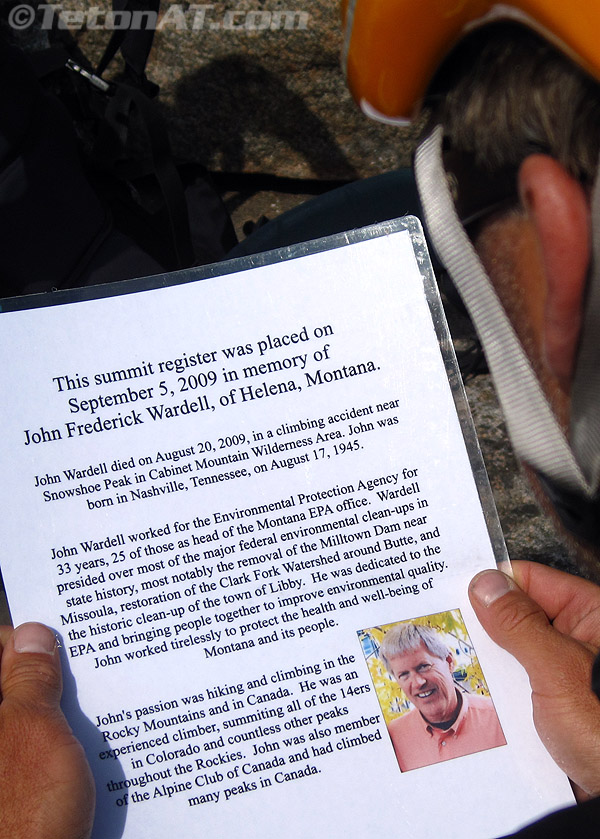 ©TetonAT.com
This summit register was placed on
September 5, 2009 in memory of
John Frederick Wardell, of Helena, Montana.
John Wardell died on August 20, 2009, in a climbing accident near
Snowshoe Peak in Cabinet Mountain Wilderness Area. John was
born in Nashville, Tennessee, on August 17, 1945.
John Wardell worked for the Environmental Protection Agency for
33 years, 25 of those as head of the Montana EPA office. Wardell
presided over most of the major federal environmental clean-ups in
state history, most notably the removal of the Milltown Dam near
Missoula, restoration of the Clark Fork Watershed around Butte, and
the historic clean-up of the town of Libby. He was dedicated to the
EPA and bringing people together to improve environmental quality.
John worked tirelessly to protect the health and well-being of
Montana and its people.
John's passion was hiking and climbing in the
Rocky Mountains and in Canada. He was an
experienced climber, summiting all of the 14ers
in Colorado and countless other peaks
throughout the Rockies. John was also member
of the Alpine Club of Canada and had climbed
many peaks in Canada.